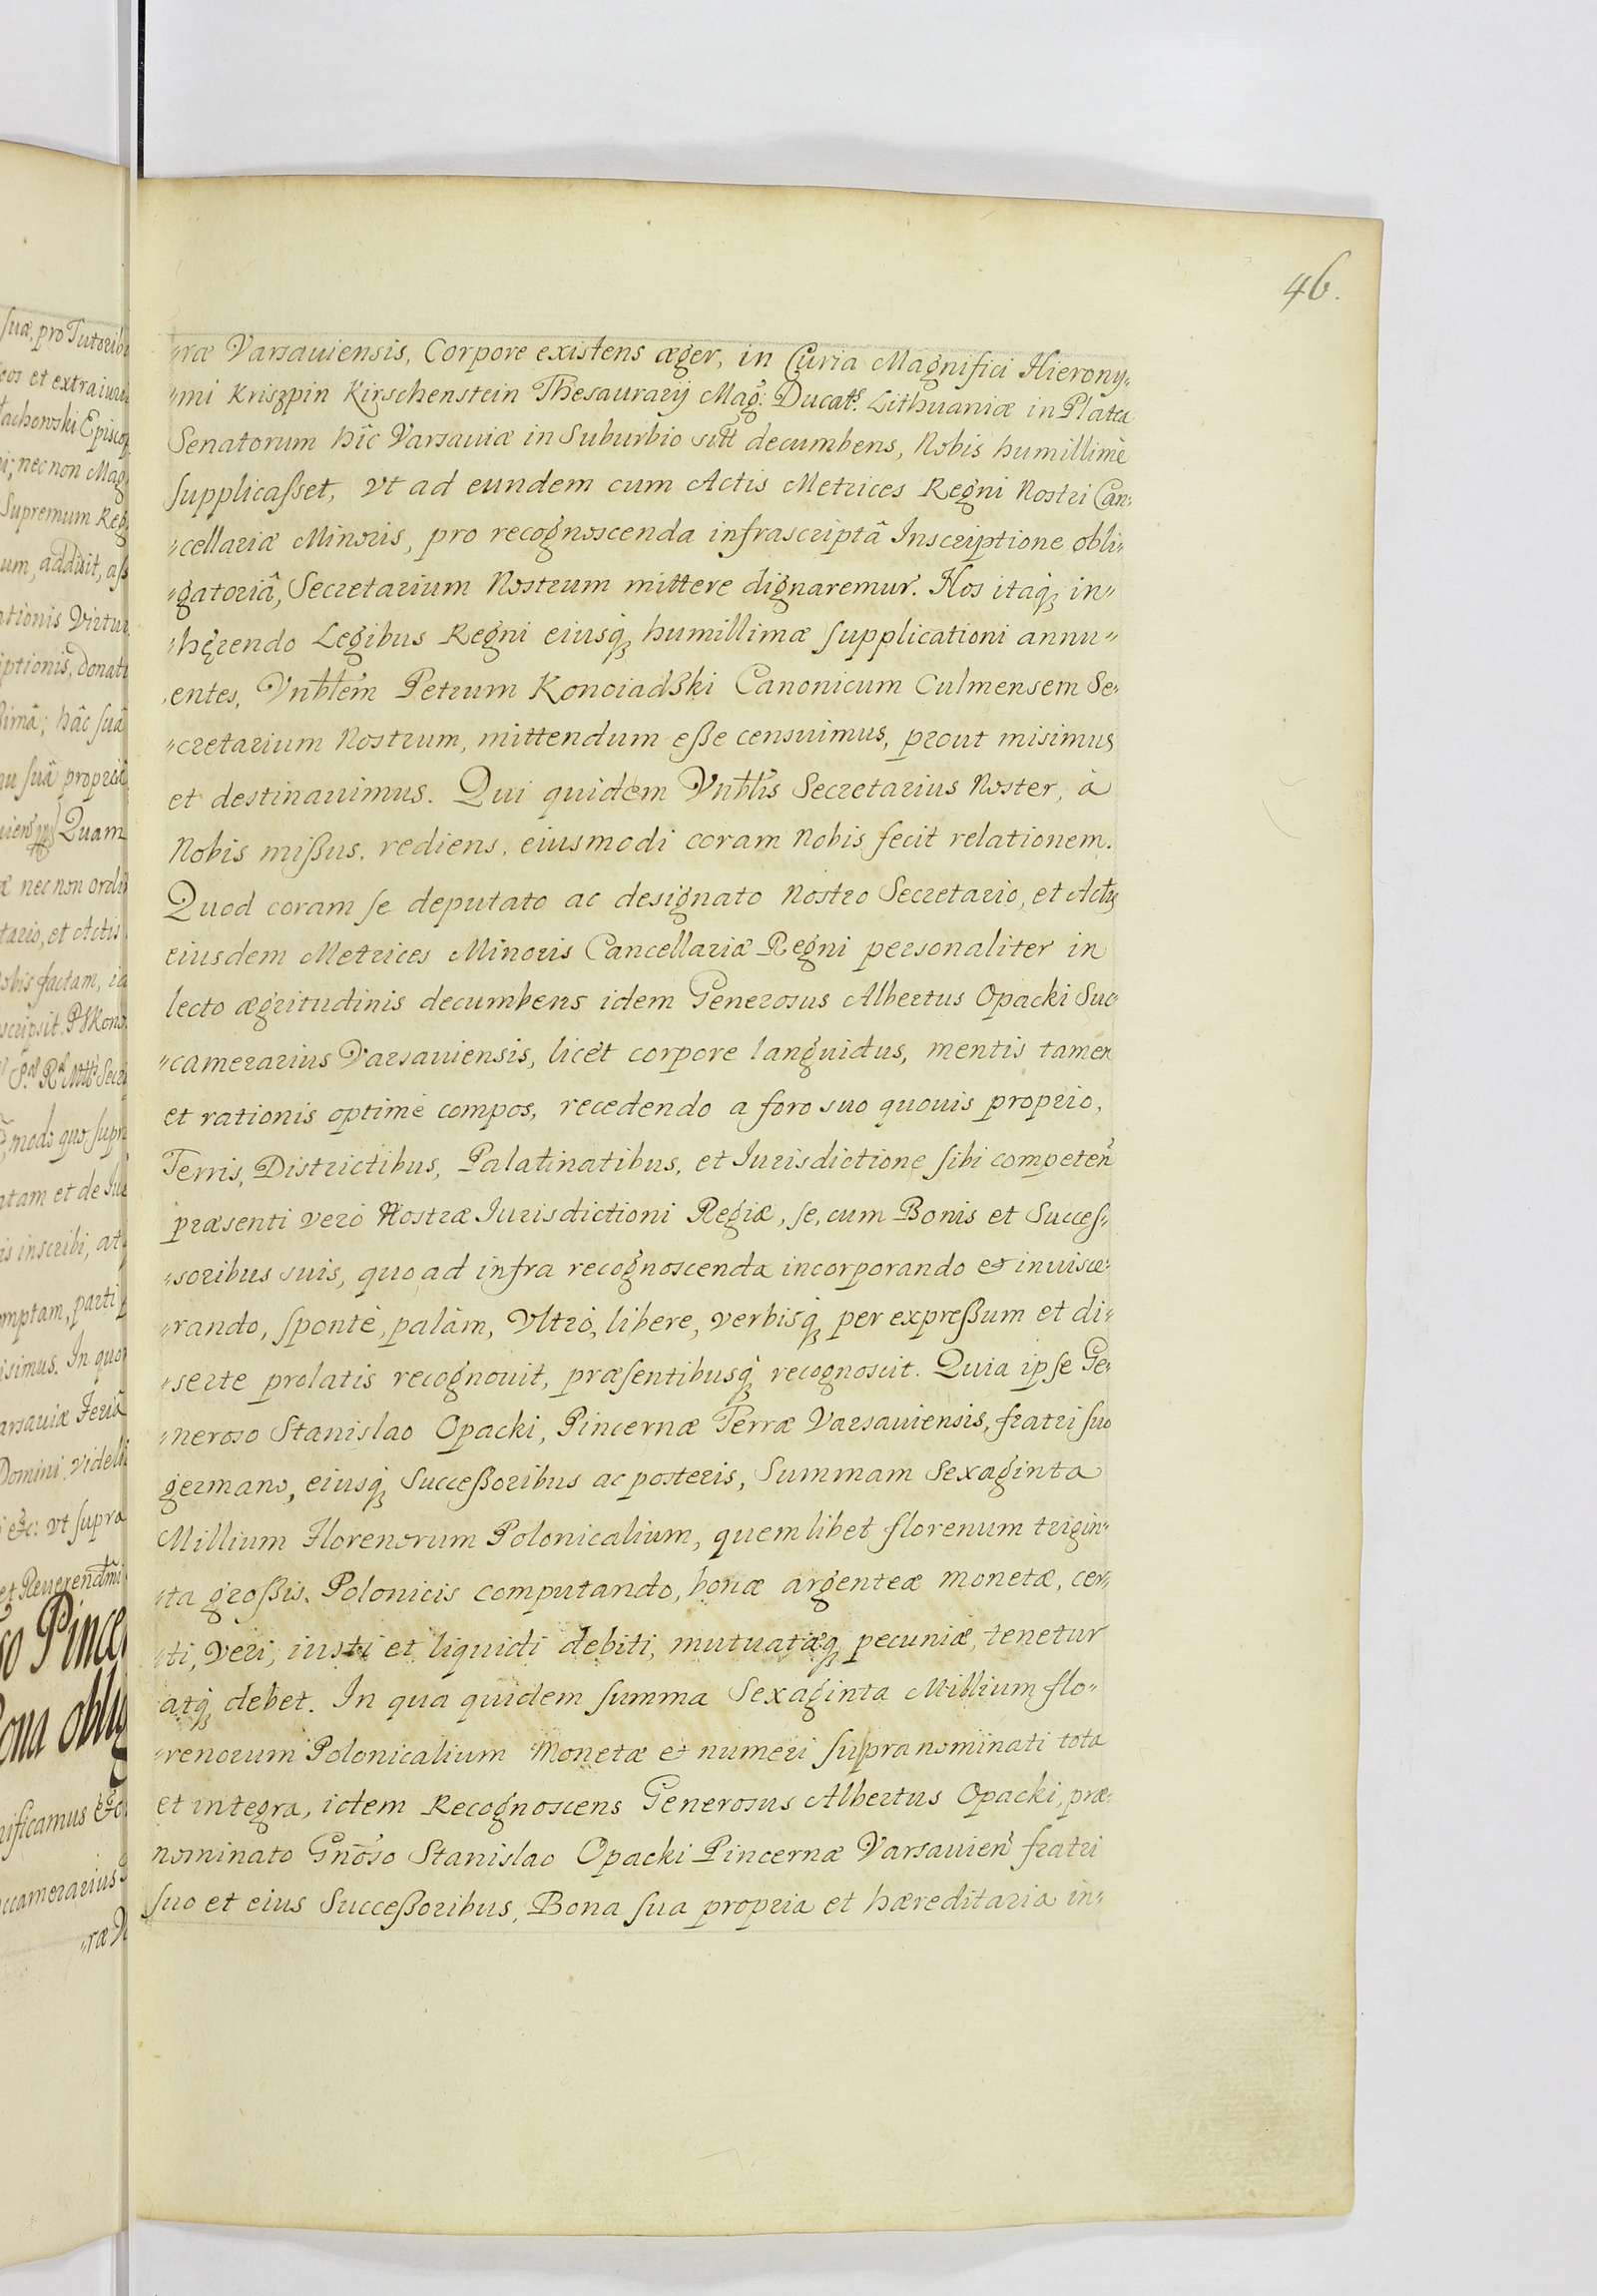 46.
„ræ Varsauiensis, Corpore existens æger, in Curia Magnifici Hierony„
„mi Kriszpin Kirschenstein Thesaurarij Mag: Ducats. Lithuaniæ in Platea
Senatorum hîc Varsauiæ in Suburbio sitt decumbens, Nobis humillimè
supplicaſset, vt ad eundem cum Actis Metrices Regni Nostri Can„
„cellariæ Minoris, pro recognoscenda infrascriptâ Inscriptione obli„
„gatoriâ, Secretarium Nostrum mittere dignaremur. Nos itaq; in„
„hęrendo Legibus Regni eiusq; humillimæ ſupplicationi annu„
„entes, Vnbłem Petrum Konoiadßki Canonicum Culmensem Se„
„cretarium Nostrum, mittendum eße censuimus, prout misimus
et destinauimus. Qui quidem Vnbłis Secretarius Noster, à
Nobis mißus, rediens, eiusmodi coram Nobis fecit relationem.
Quod coram ſe deputato ac designato Nostro Secretario, et Actis
eiusdem Metrices Minoris Cancellariæ Regni personaliter in
lecto ægritudinis decumbens idem Generosus Albertus Opacki Suc„
„camerarius Varsauiensis, licèt corpore languidus, mentis tamen
et rationis optimè compos, recedendo a foro suo quouis proprio,
Terris, Districtibus, Palatinatibus, et Iurisdictione ſibi competen
præsenti verò Nostræ Iurisdictioni Regiæ, ſe, cum Bonis et Succeſ„
„soribus suis, quo ad infra recognoscenda incorporando et inuisce„
„rando, ſpontè, palàm, Vltrò, libere, verbisq; per expreßum et di„
„serte prolatis recognouit, præſentibusq; recognoscit. Quia ipſe Ge„
„neroso Stanislao Opacki, Pincernæ Terræ Varsauiensis, fratri ſuo
germano, eiusq; Succeßoribus ac posteris, Summam Sexaginta
Millium Florenorum Polonicalium, quemlibet florenum trigin„
„ta großis Polonicis computando, bonæ argenteæ monetæ, cer„
„ti, veri, iusti et liquidi debiti, mutuatæq; pecuniæ, tenetur
atq; debet. In qua quidem ſumma Sexaginta Millium flo„
„renorum Polonicalium Monetæ et numeri ſupra nominati tota
et integra, idem Recognoscens Generosus Albertus Opacki, præ„
nominato Gnoso Stanislao Opacki Pincernæ Varsauien fratri
ſuo et eius Succeßoribus, Bona ſua propria et hæreditaria in„